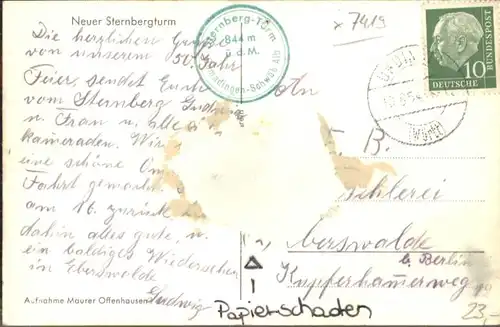 Neuer Sternbergturm
Die herzlichen Grüße
von unserem 50 Jahr
Feier, sendet Euch
vom Sternberg
u. Frau u. alle
kameraden. Wir
eine schöne
Fahrt gemacht
am 16. zurück
dahin alles gute, u.
ein baldiges Wiedersehen
in Eberswalde
Ludwig
Aufnahme Maurer Offenhausen
Sternberg-Turm
844 m
ü. d. M.
Schwäb. Alb
x 7419
DEUTSCHE
BUNDESPOST
10
An
B.
erswalde
b. Berlin
Kupferhammerweg
Papier-schaden
23,-